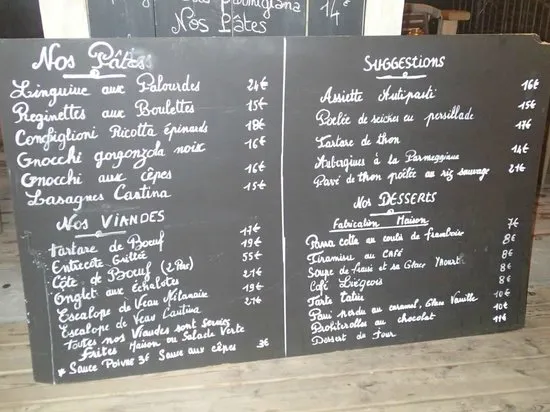 Parmigiana 14€
Nos Pâtes
Nos Pâtes
Linguine aux Palourdes 24€
Reginettes aux Boulettes 15€
Conghiglioni Ricotta épinards 18€
Gnocchi gorgonzola noix 16€
Gnocchi aux cèpes 16€
Lasagnes Cantina 15€
Nos Viandes
Tartare de Boeuf 17€
Entrecôte Grillée 19€
Côte de Boeuf (2 Pers) 55€
Onglet aux échalotes 21€
Escalope de Veau Milanaise 19€
Escalope de Veau Cantina 21€
Toutes nos Viandes sont Servies
Frites Maison ou Salade Verte
* Sauce Poivre 3€ Sauce aux cèpes 3€
Suggestions
Assiette Antipasti 16€
Poêlée de seiches en persillade 15€
Tartare de thon 17€
Aubergines à la Parmeggiana 14€
Pavé de thon poêlée au riz sauvage 21€
Nos Desserts
Fabrication Maison
Panna cotta au coulis de framboise 7€
Tiramisu au Café 8€
Soupe de fruit et sa Glace Yaourt 8€
Café Liégeois 8€
Tarte Tatin 8€
Pain perdu au caramel, Glace Vanille 10€
Profiterolles au chocolat 10€
Dessert du Jour 11€